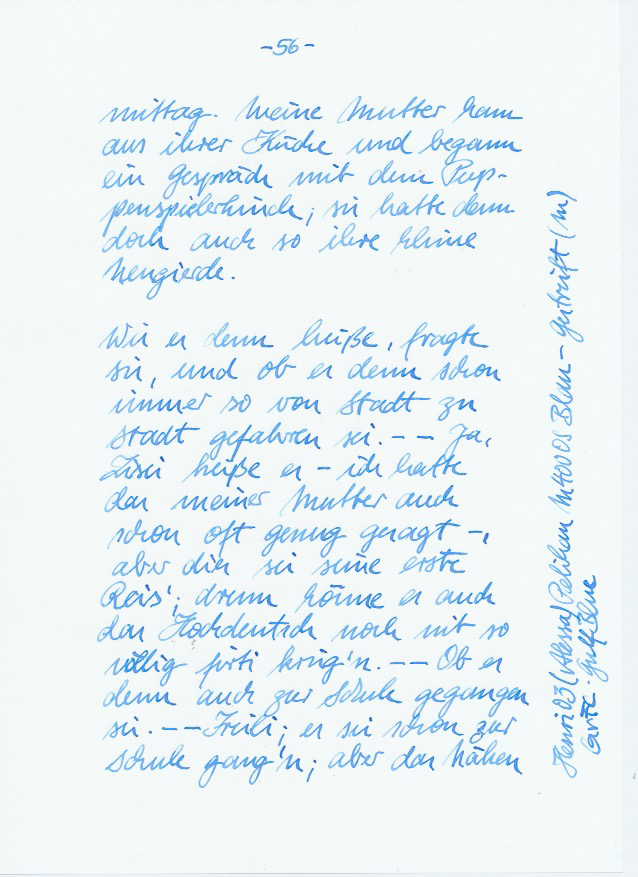 -56-
mittag. Meine Mutter kam
aus ihrer Küche und begann
ein Gespräch mit dem Pup-
penspielerkinde; sie hatte denn
doch auch so ihre kleine
Neugierde.
Wie er denn heiße, fragte
sie, und ob er denn schon
immer so von Stadt zu
Stadt gefahren sei. -- Ja,
Lisei heiße er - ich hatte
das meiner Mutter auch
schon oft genug gesagt -,
aber dies sei seine erste
Reis'; drum könne er auch
das Hochdeutsch noch nit so
völlig firti krieg'n. -- Ob er
denn auch zur Schule gegangen
sei. -- Freili; er sei schon zur
Schule gang'n; aber das Nähen
Henri03 (Alessa) Pelikan M400 OS Blau-gestreift (M)
GvFC Gulf Blue